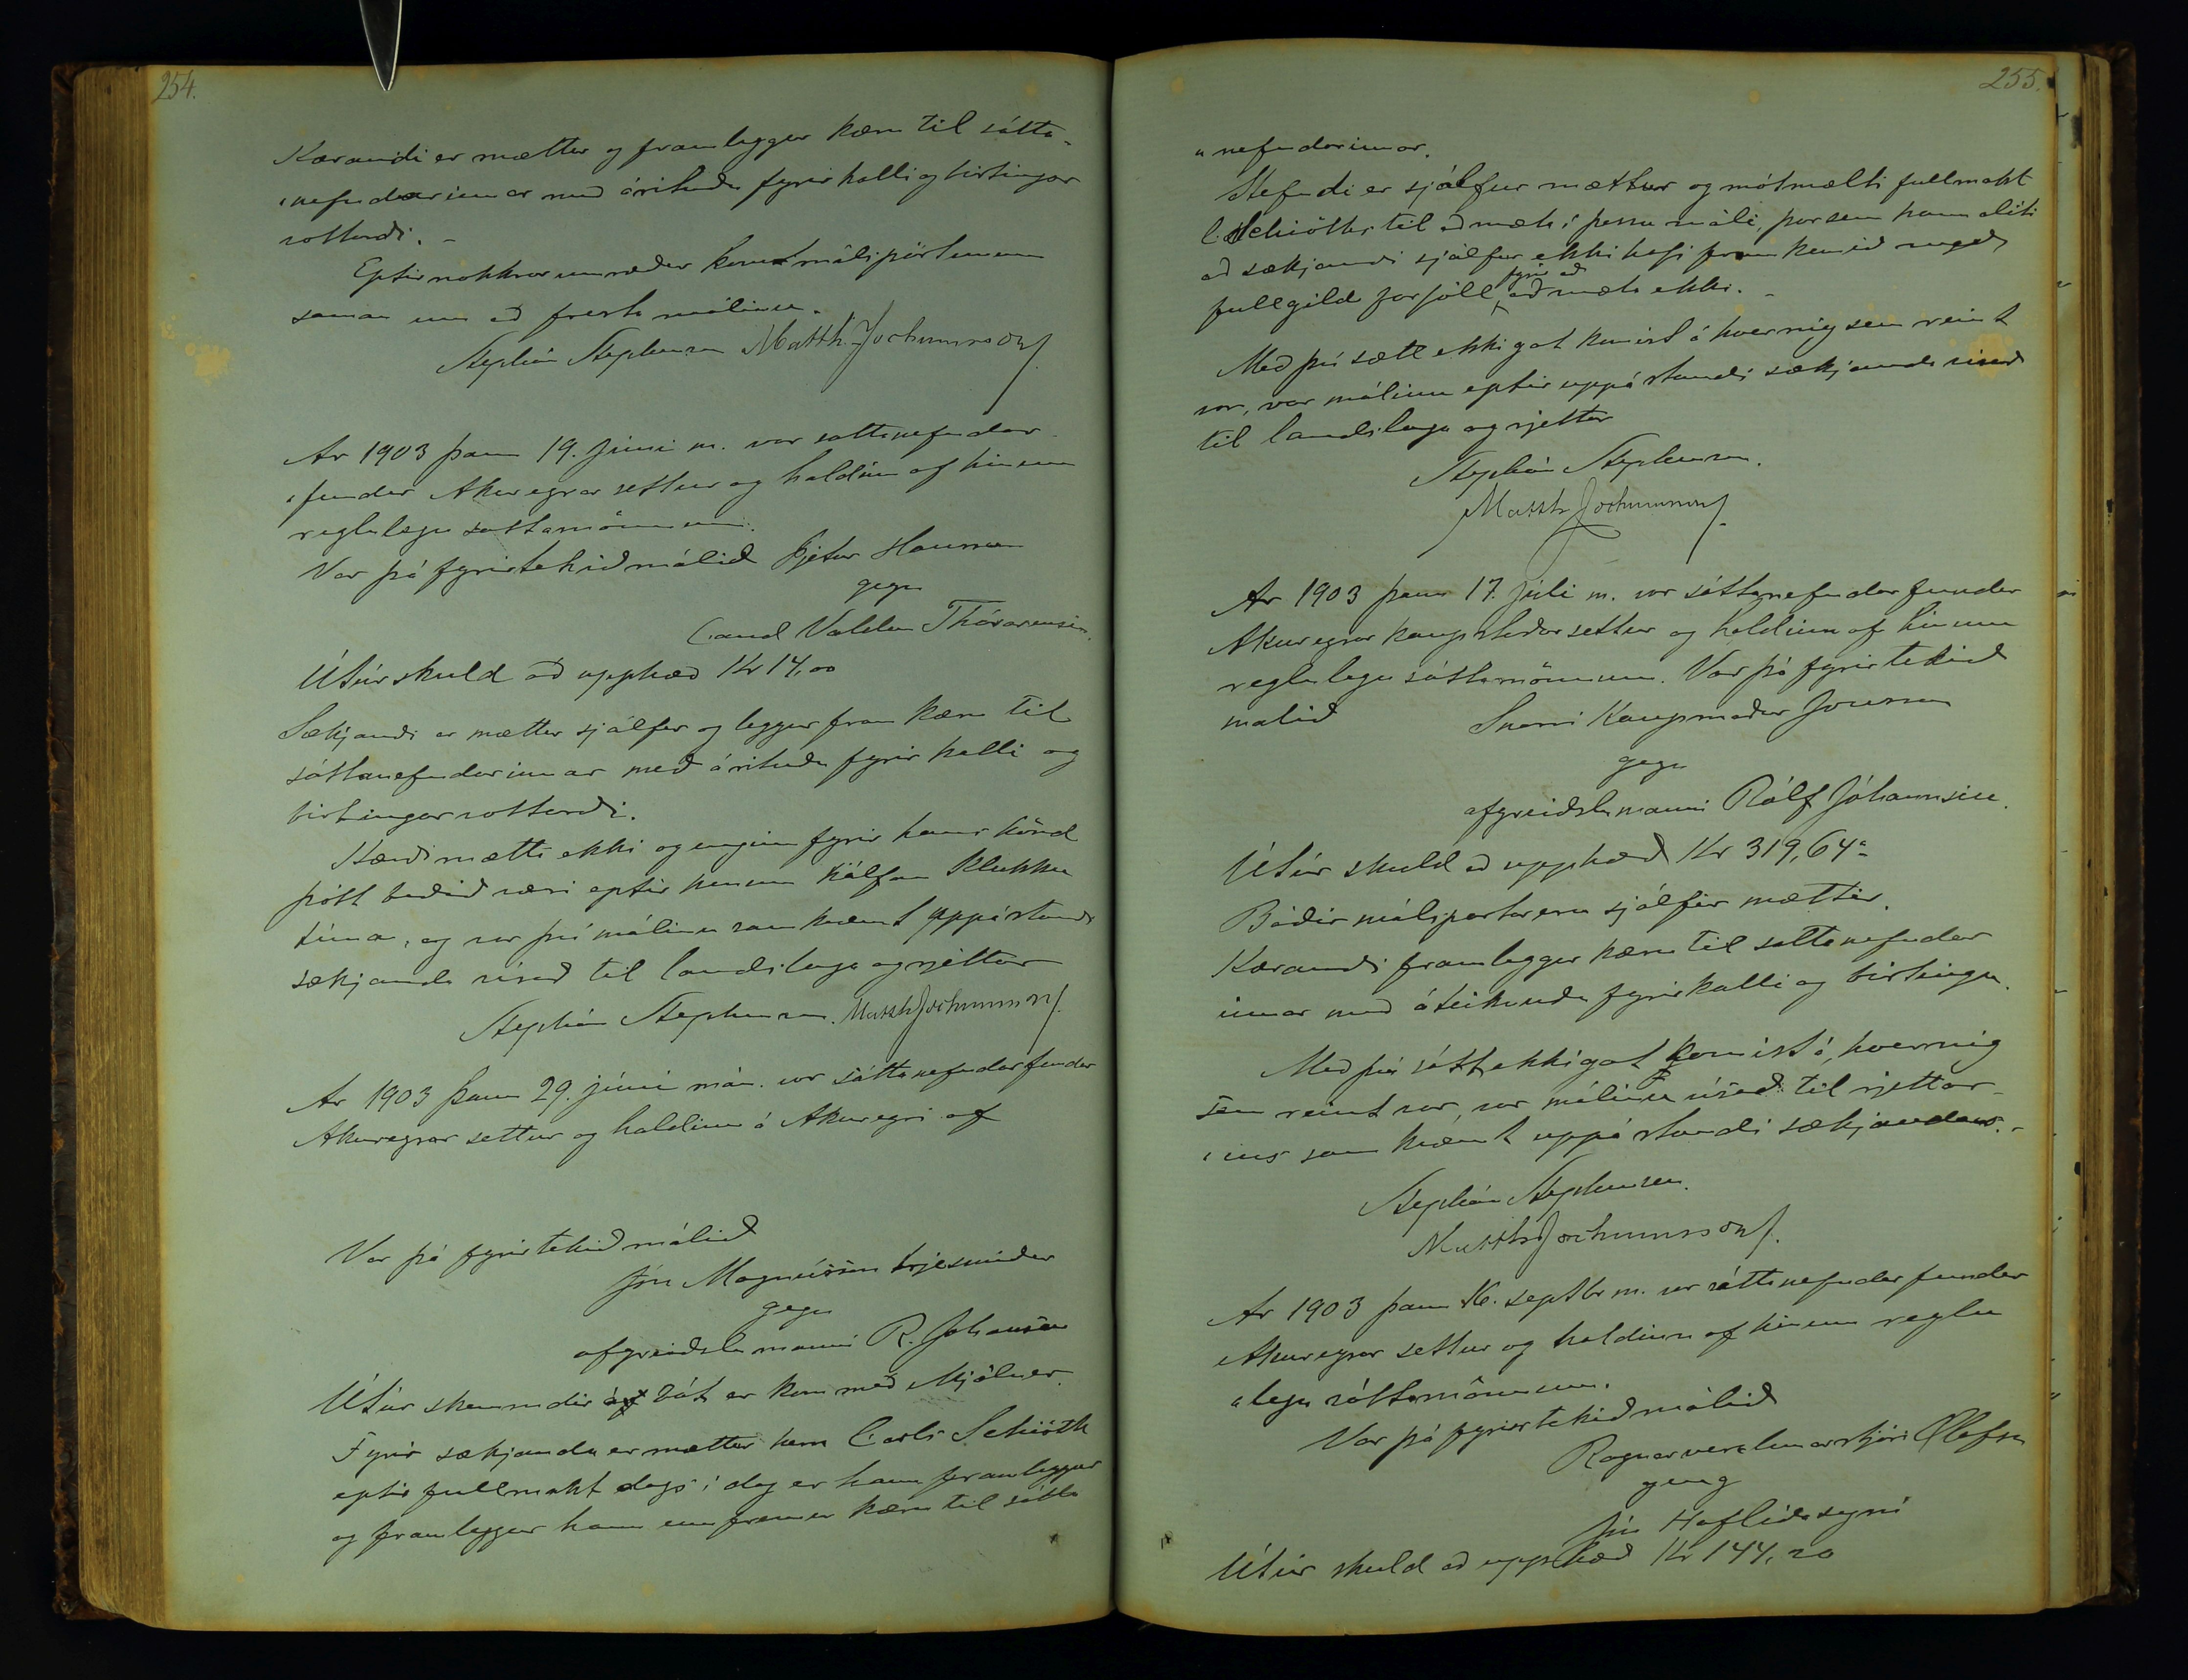 254.
Kærandi er mættur og framleggur kæru til sátta-
„nefndarinnar með árituðu fyrirkalli og birtingar
vottorði. -
Eptir nokkrar umræður komst málspörtunum
saman um að fresta málinu.
Stephán Stephensen Matth. Jochumsson
Ár 1903 þann 19. Júni m. var sattanefndar
„fundur Akureyrar settur og haldinn af hinum
reglulegu sattamönnum.
Var þá fyrirtekið málið Pjetur Hansson
gegn
Cand Valdim Thórarensen.
Útúr skuld að upphæð Kr 14,00
Sækjandi er mættur sjálfur og leggur fram kæru til
sáttanefndarinnar með árituðu fyrirkalli og
birtingarvottorði.
Kærði mætti ekki og enginn fyrir hans hönd
þótt beðið væri eptir honum hálfan klukku
tíma, og var því málinu samkvæmt uppástandi
sækjanda vísað til landslaga og rjettar
Stephán Stephensen. Matth Jochumsson
Ár 1903 þann 29. júni mán. var sáttanefndarfundur
Akureyrar settur og haldinn á Akureyri af
Var þá fyrirtekið málið
Jón Magnússon trjesmiður
gegn
afgreiðslumanni R. Johansen
Útúr skemmdir á bát er kom með Mjölner.
Fyrir sækjanda er mættur herra Carl Schiöth
eptir fullmakt dags í dag er hann framleggur
og framleggur hann ennfremur kæru til sátta
255.
„nefndarinnar.
Stefndi er sjálfur mættur og mótmælti fullmakt
C. Schiöths til að mæta í þessu máli, þar sem hann áliti
að sækjandi sjálfur ekki hafi fram komið með
fyrir að
fullgild forföll að mæta ekki. -
Með því sætt ekki gat komist á hvernig sem reint
var, var málinu eptir uppástandi sækjanda vísað
til landslaga og rjettar
Stephán Stephensen.
Matth Jochumsson
Ár 1903 þann 17. júlí m. var sáttanefndarfundur
Akureyrar kaupstaðar settur og haldinn af hinum
reglulegu sáttamönnum. Var þá fyrirtekið
malið Snorri Kaupmaður Jónsson
gegn
afgreiðslumanni Rólf Jóhannsen.
Útúr skuld að upphæð Kr 319,64
Báðir málspartar eru sjálfir mættir.
Kærandi framleggur kæru til sattanefndar
innar með áteiknuðu fyrirkalli og birtingu.
Með því sátt ekki gat komist á, hvernig
sem reint var, var málinu vísað til rjettar-
„ins samkvæmt uppástandi sækjandans. -
Stephán Stephensen.
Matth Jochumsson
Ár 1903 þann 16. septbr m. var sáttanefndarfundur
Akureyrar settur og haldinn af hinum reglu
„legu sáttamönnum.
Var þá fyrirtekið málið
Ragnar verslunarstjóri Ólafsson
gegn
Jón Hafliðasyni
Útúr skuld að upphæð Kr 144,20